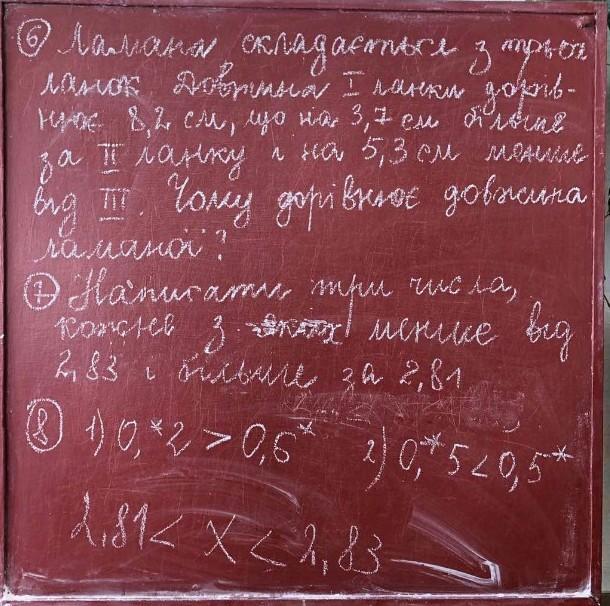 6 Ламана складається з трьох
ланок Довжина I ланки дорів-
нює 8,2 см, що на 3,7 см більше
за II ланку і на 5,3 см менше
від III. Чому дорівнює довжина
ламаної?
7 Написати три числа,
кожне з яких менше від
2,83 і більше за 2,81
8 1) 0,*2 > 0,6* 2) 0,*5 < 0,5*
2,81 < x < 2,83